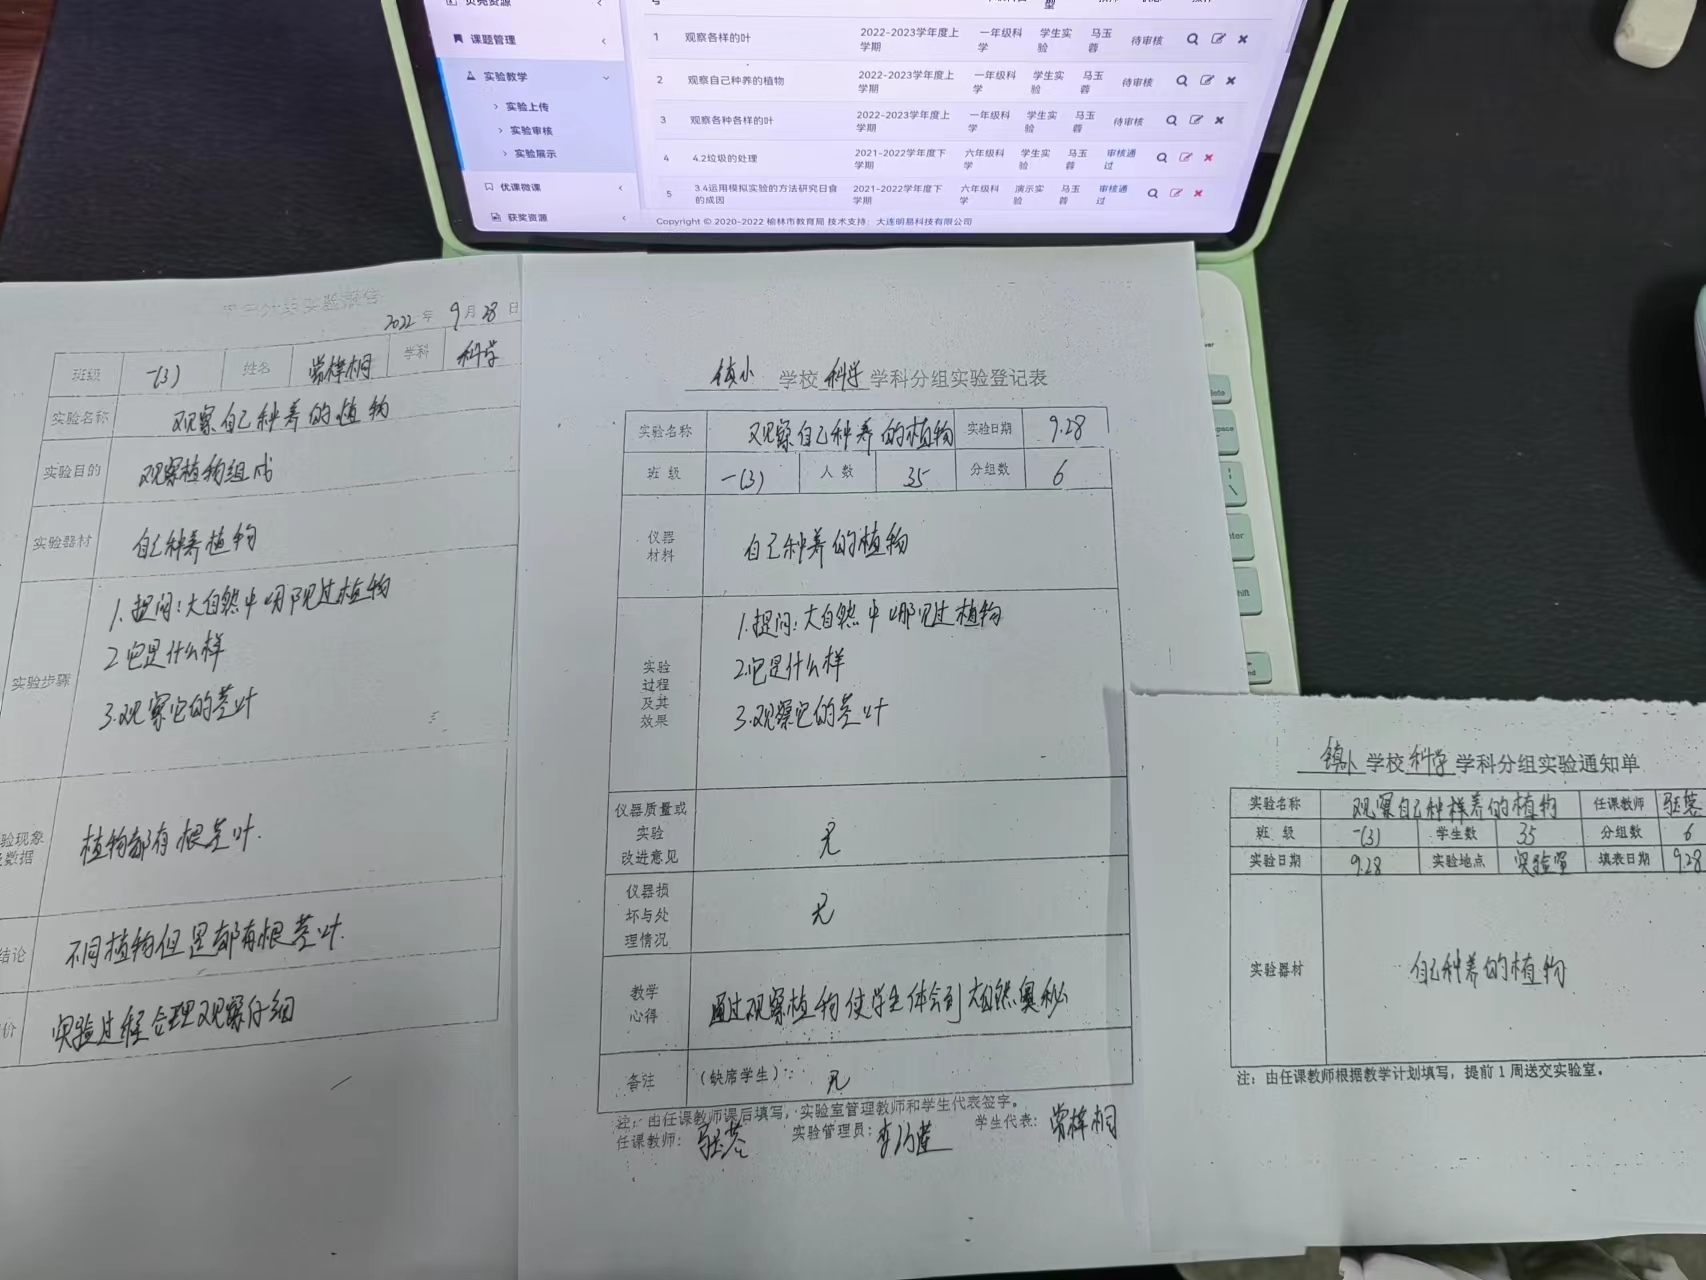 页壳资源
课题管理
实验教学
实验上传
实验审核
实验展示
优课微课
获奖资源
型
1 观察各样的叶 2022-2023学年度上学期 一年级科学 学生实验 马玉蓉 待审核
2 观察自己种养的植物 2022-2023学年度上学期 一年级科学 学生实验 马玉蓉 待审核
3 观察各种各样的叶 2022-2023学年度上学期 一年级科学 学生实验 马玉蓉 待审核
4 4.2垃圾的处理 2021-2022学年度下学期 六年级科学 学生实验 马玉蓉 审核通过
5 3.4运用模拟实验的方法研究日食的成因 2021-2022学年度下学期 六年级科学 演示实验 马玉蓉 审核通过
Copyright © 2020-2022 榆林市教育局 技术支持：大连明易科技有限公司
实验报告
2022 年 9 月 28 日
班级 一(3) 姓名 常梓桐 学科 科学
实验名称 观察自己种养的植物
实验目的 观察植物组成
实验器材 自己种养植物
实验步骤
1.提问:大自然中哪见过植物
2.它是什么样
3.观察它的茎叶
验现象
数据
植物都有根茎叶.
结论 不同植物但是都有根茎叶.
价 实验过程合理观察仔细
镇小 学校 科学 学科分组实验登记表
实验名称 观察自己种养的植物 实验日期 9.28
班 级 一(3) 人 数 35 分组数 6
仪器
材料
自己种养的植物
实验
过程
及其
效果
1.提问:大自然中哪见过植物
2.它是什么样
3.观察它的茎叶
仪器质量或
实验
改进意见
无
仪器损
坏与处
理情况
无
教学
心得
通过观察植物使学生体会到大自然奥秘
备注 (缺席学生): 无
注：由任课教师课后填写，实验室管理教师和学生代表签字。
任课教师： 马玉蓉 实验管理员： 学生代表： 常梓桐
镇小 学校 科学 学科分组实验通知单
实验名称 观察自己种样养的植物 任课教师 马玉蓉
班 级 一(3) 学生数 35 分组数 6
实验日期 9.28 实验地点 实验室 填表日期 9.28
实验器材 自己种养的植物
注：由任课教师根据教学计划填写，提前1周送交实验室。